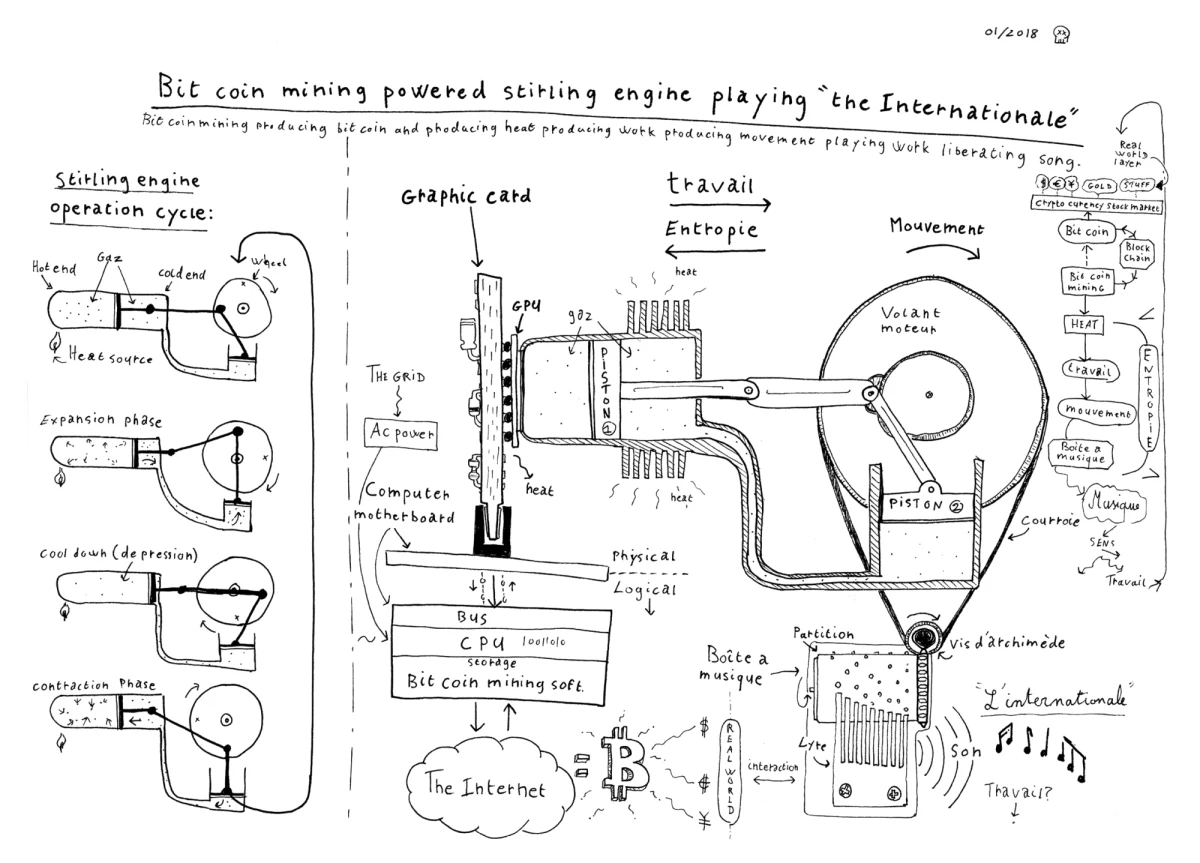 01/2018
Bit coin mining powered stirling engine playing "the Internationale"
Bit coin mining producing bit coin and producing heat producing work producing movement playing work liberating song.
Stirling engine
operation cycle:
Hot end
Gaz
cold end
wheel
Heat source
Expansion phase
cool down (depression)
contraction Phase
Graphic card
GPU
travail
Entropie
heat
gaz
PISTON ①
heat
heat
THE GRID
Ac power
Computer
motherboard
Physical
Logical
BUS
CPU 1001010
storage
Bit Coin mining soft.
The Internet
=
B
$
€
¥
REAL WORLD
interaction
Mouvement
Volant
moteur
PISTON ②
Courroie
Vis d'archimède
Partition
Boîte a
musique
Lyre
Son
"L'internationale"
Travail?
Real
world
layer
$ € ¥ GOLD STUFF
Crypto curency stock market
Bit coin
Block
chain
Bit coin
mining
HEAT
travail
mouvement
Boite a
musique
ENTROPIE
Musique
SENS
Travail